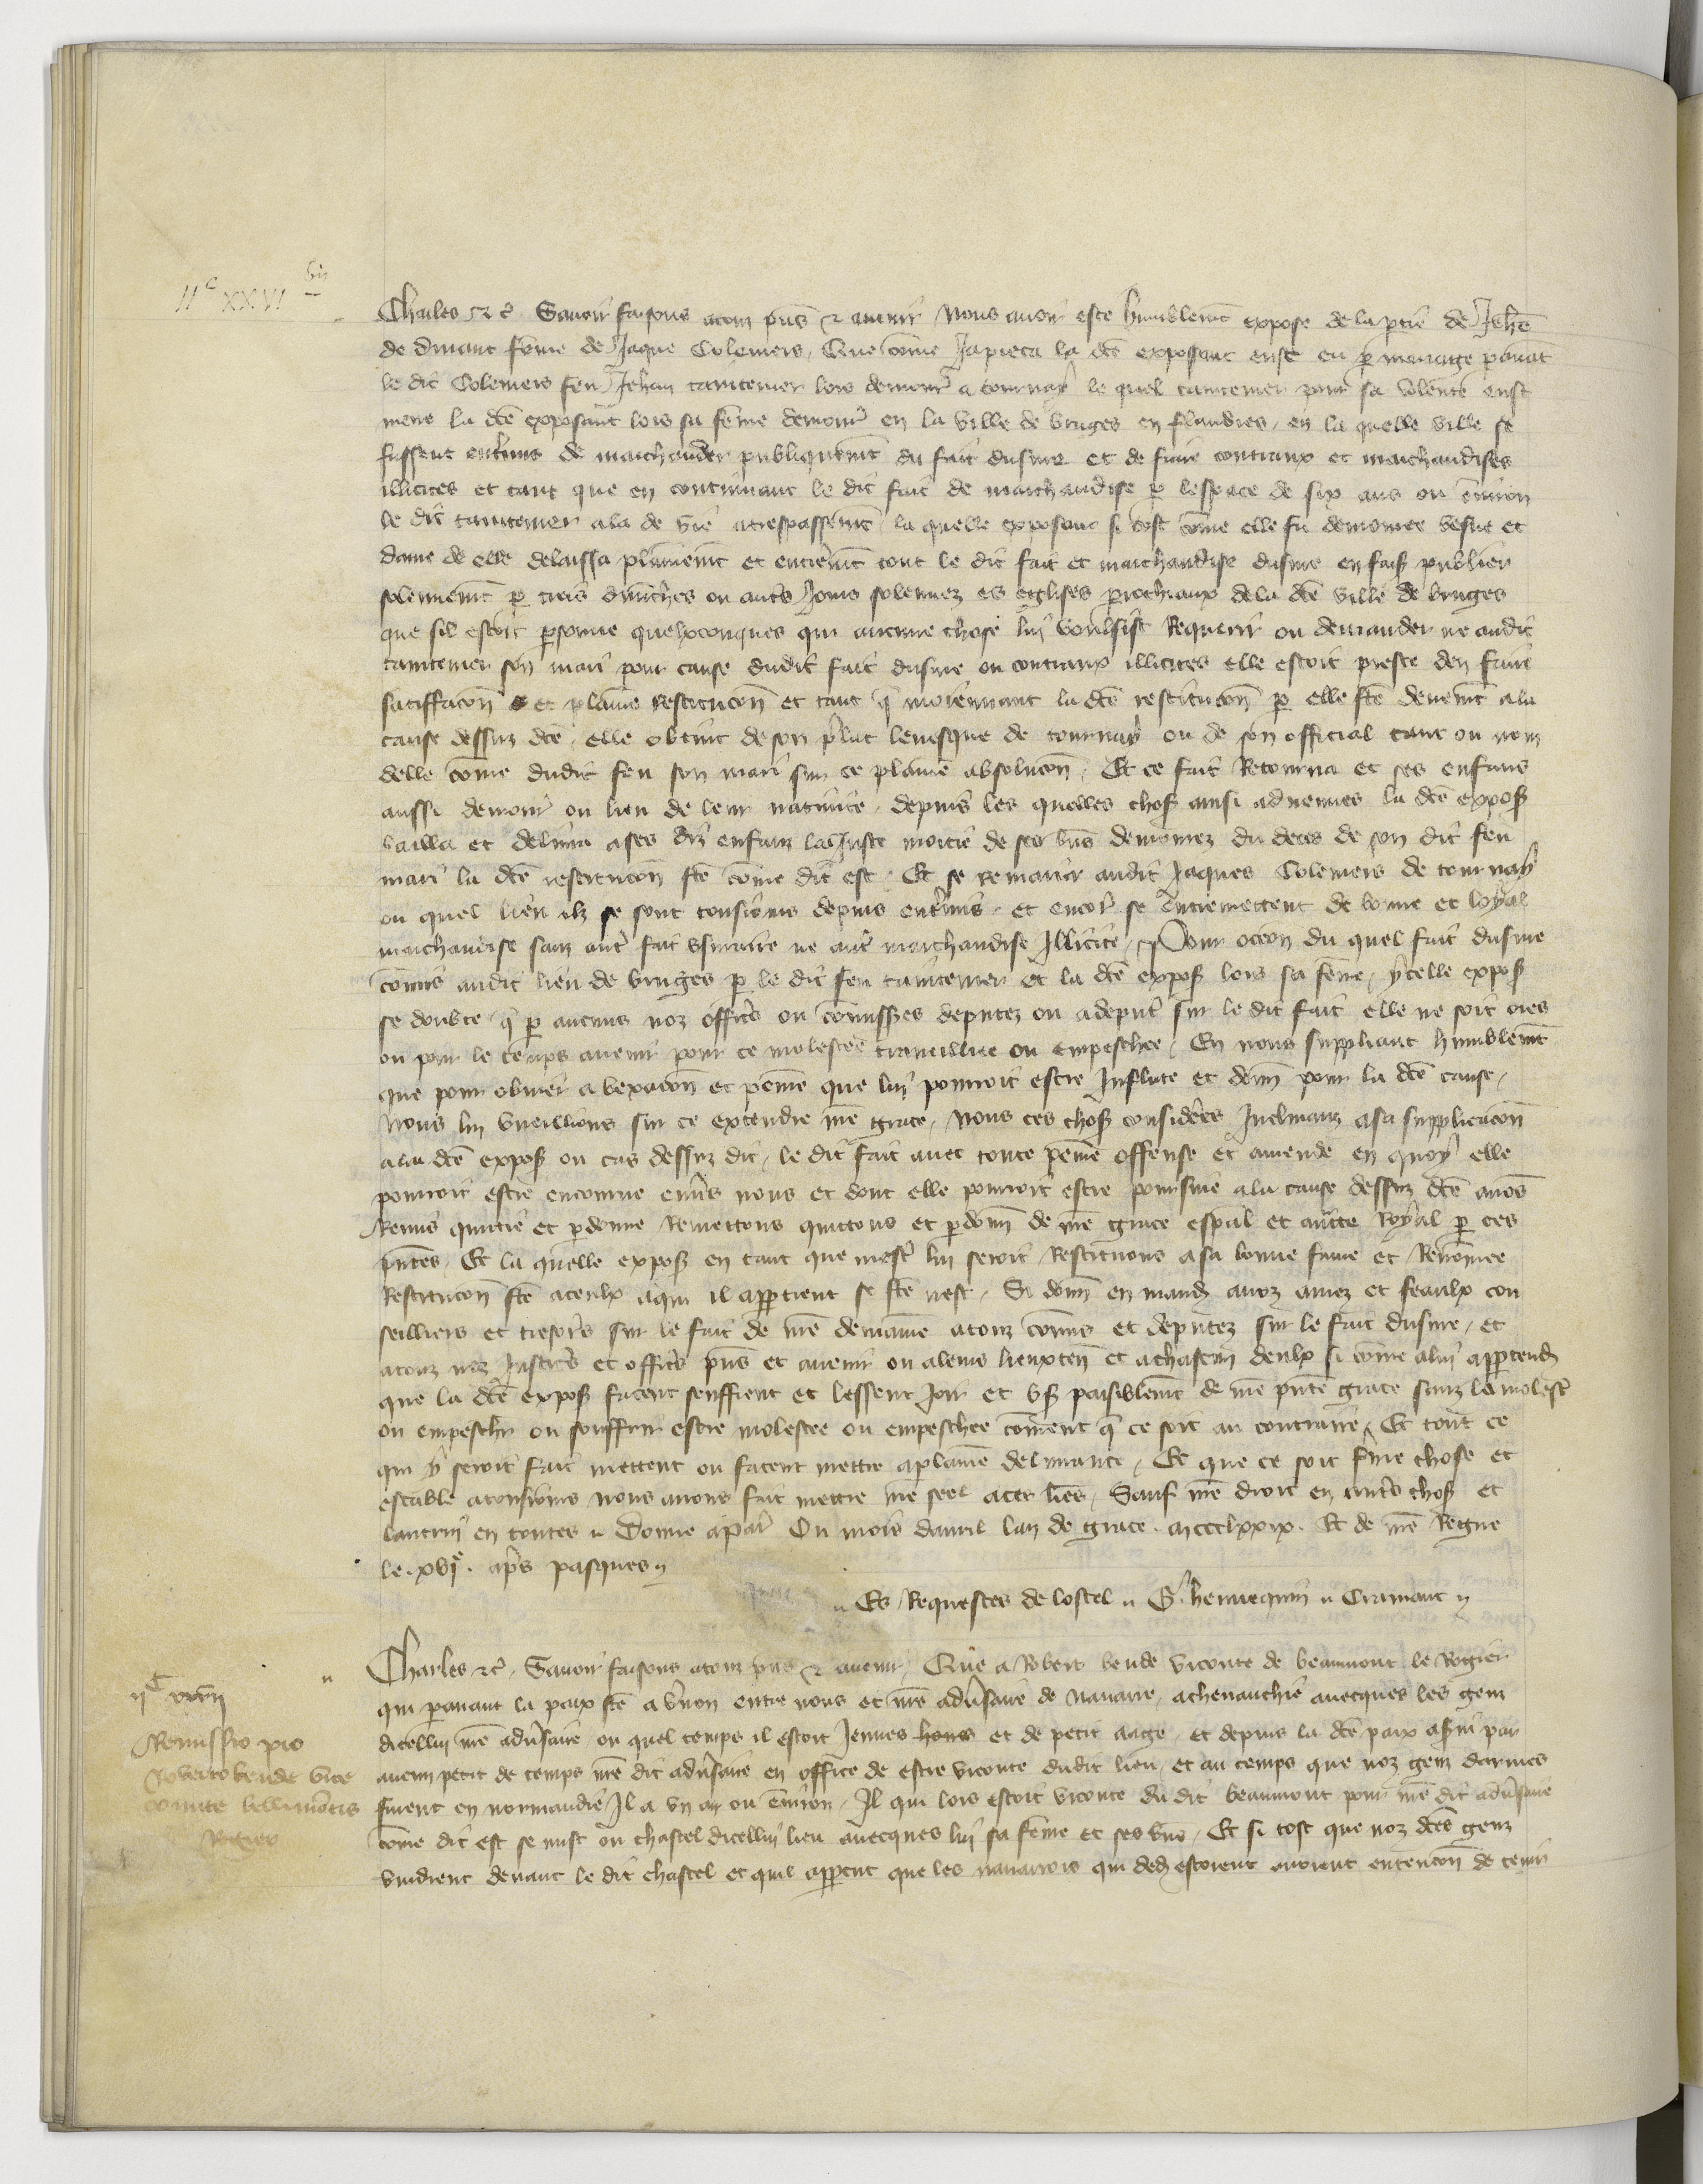 IIᶜ XXVI bis
Charles etc̃ Savoir faisons a touz pñs et avenir Nous avoir este humblemẽt expose de la partie de Jehẽ
de dinant fẽme de Jaque Colemers, Que cõme Ja pieca la dcẽ exposant eust eu p mariage pavãt
le dit Colemers feu Jehan tavernier lors demour̃ a tournay le quel tavernier par sa volente eust
mene la dcẽ exposant lors sa fẽme demour̃ en la ville de bruges en flandres, en la quelle ville se
fussent entremis de marchander publiquemẽt du fait dusure et de faire contraux et marchandises
illicites et tant que en continuant le dit fait de marchandise p lespace de six ans ou env̾iron
le dit tavernier ala de vie a trespassemẽt, la quelle exposant si tost cõme elle fu demouree vesve et
dame de elle delaissa plainemẽt et entieremẽt tout le dit fait et marchandise dusure en fais̃ publier
solennemẽt p trois dimẽches ou autr̃s Jours solennez es esglises parrochiaux de la dcẽ ville de bruges
que sil estoit psonne quelxconques qui aucune chose luy voulsist Requerir ou demander ne audit
tavernier son mari pour cause dudit fait dusure ou contraux illicites elle estoit preste den faire
satiffacõn et plaine restitucõn et tant q̃ moiennant la dcẽ restitucõn p elle fcẽ deuemẽt a la
cause dessuz dcẽ, elle obtint de son p̃lat levesque de tournay ou de son official tant ou nom
delle cõme dudit feu son mari sur ce plaine absolucõn, Et ce fait Retourna et ses enfans
aussi demour̃ ou lieu de leur nativite, depuis les quelles chos̃ ainsi advenues la dcẽ expos̃
bailla et delivra a ses diz enfanz la Juste moitie de ses biens demourez du deces de son dit feu
mari la dcẽ restitucõn fcẽ cõme dit est, Et se remarier audit Jaques Colemers de tournay
ou quel lieu ilz se sont tousiours depuis entremis, et encor̃ se entremettent de bonne et loyal
marchandise sanz autr̃ fait usuraire ne autr̃ marchandise Illicite, Pour occõn du quel fait dusure
cõmis audit lieu de bruges p le dit feu tavernier et la dcẽ expos̃ lors sa fẽme, ycelle expos̃
se doubte q̃ p aucuns noz offic̃s ou cõmissĩres deputez ou a deput̃ sur le dit fait elle ne soit ores
ou pour le temps avenir pour ce molestee travaillie ou empeschee, En nous suppliant humblemẽt
que pour obvier a vexacõn et peine que luy pourroit estre Inflicte et donn̄ pour la dcẽ cause,
Nous luy vueillions sur ce extendre nr̃e grace, Nous ces chos̃ considerees Inclinanz a sa supplicacõn
a la dcẽ expos̃ ou cas dessuz dit, le dit fait avec toute peine offense et amende en quoy elle
pourroit estre encourue envers nous et dont elle pourroit estre poursuie a la cause dessuz dcẽ avõs
Remis quittie et pdonne Remettons quittons et pdonn̄ de nr̃e grace espal et auctẽ Royal p ces
pñtes, Et la quelle expos̃ en tant que mest̃ lui seroit Restituons a sa bonne fame et Renõmee
Restitucõn fcẽ a ceulx a qui il appartient se fcẽ nest, Si donn̄ en mand̃ a noz amez et feaulx con
seilliers et tresor̃s sur le fait de nr̃e demaine a touz cõmis et deputez sur le fait dusure, et
a touz noz Justic̃s et offic̃s pñs et avenir ou a leurs lieuxten̄ et a chascun deulx si cõme a luy appartend̃
que la dcẽ expos̃ facent seuffrent et lessent Joir et us̃ paisiblemẽt de nr̃e pñte grace sanz la molest̃
ou empeschr̃ ou souffrir estre molestee ou empeschee cõment q̃ ce soit au contraire, Et tout ce
qui y seroit fait mettent ou facent mettre a plaine delivrance, Et que ce soit ferme chose et
estable a tousiours nous avons fait mettre nr̃e seel a ces lr̃es, Sauf nr̃e droit en autr̃s chos̃ et
lautruy en toutes, Donne a par̃ Ou mois davril lan de grace. mccclxxix. Et de nr̃e Regne
le. xvi.ᵉ ap̃s pasques
Es Requestes de lostel, G. hennequin, Cramant
IIᶜ XXVII
Remissio pro
Roberto bende vice
comite bellimontis
Rogier
Charles etc̃. Savoir faisons a touz pñs et avenir, Que a Robert bende viconte de beaumont le Rogier
qui paravant la paix fcẽ a v̾non entre nous et nr̃e adv̾saire de Navarre, a chevauchie avecques les genz
dicelluy nr̃e adv̾saire, ou quel temps il estoit Jeunes homs et de petit aage, et depuis la dcẽ paix assez par
avenu petit de temps nr̃e dit adv̾saire en office de estre viconte dudit lieu, et au temps que noz genz darmes
furent en normandie Il a un an ou env̾iron, Il qui lors estoit viconte du dit beaumont pour nr̃e dit adv̾saire
cõme dit est se mist ou chastel dicelluy lieu avecques luy sa fẽme et ses biens, Et si tost que noz dcẽs genz
vindrent devant le dit chastel et quil appercut que les navarrois qui ded̃ estoient avoient entencõn de tenir